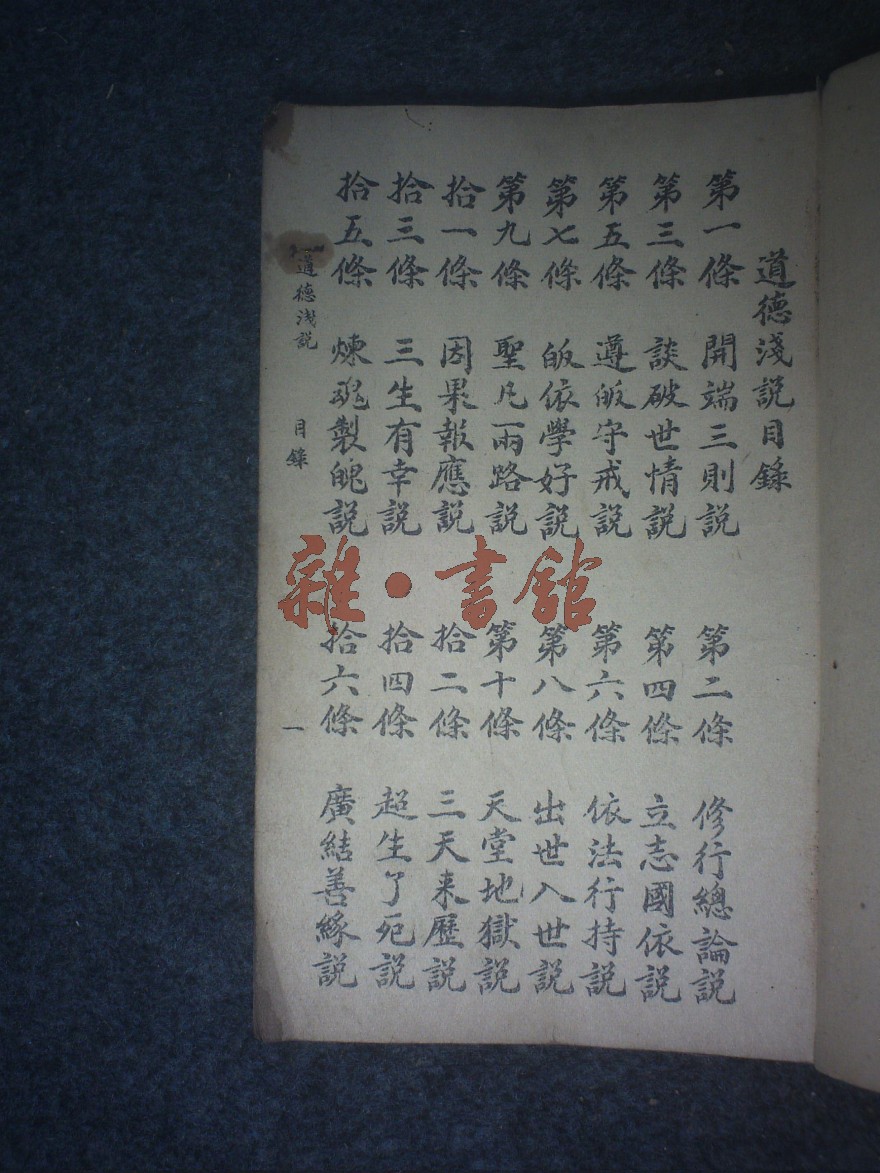 道德淺説目錄
第一條 開端三則説 第二條 修行總論説
第三條 談破世情説 第四條 立志國依説
第五條 遵皈守戒説 第六條 依法行持説
第七條 皈依學好説 第八條 出世入世説
第九條 聖凡兩路説 第十條 天堂地獄説
拾一條 因果報應説 拾二條 三天来歷説
拾三條 三生有幸説 拾四條 超生了死説
拾五條 煉魂製魄説 拾六條 廣結善緣説
道德淺説 目錄 一
雜·書館